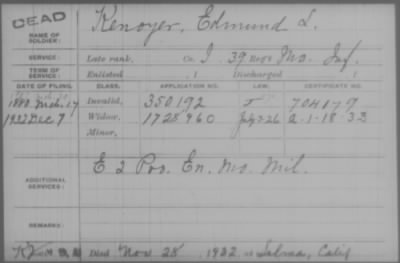 DEAD
NAME OF SOLDIER: Kenoyer, Edmund L.
SERVICE: Late rank, Co. I, 39 Reg't Mo. Inf.
TERM OF SERVICE: Enlisted , 1 Discharged , 1
DATE OF FILING. CLASS. APPLICATION NO. LAW. CERTIFICATE NO.
1880 Mch. 17 Invalid, 350192 704179
1932 Dec 7 Widow, 1728960 A-1-18-33
Minor,
ADDITIONAL SERVICES: E 2 Pro. En. Mo. Mil.
REMARKS:
Died Nov 25, 1932, at Selma, Calif